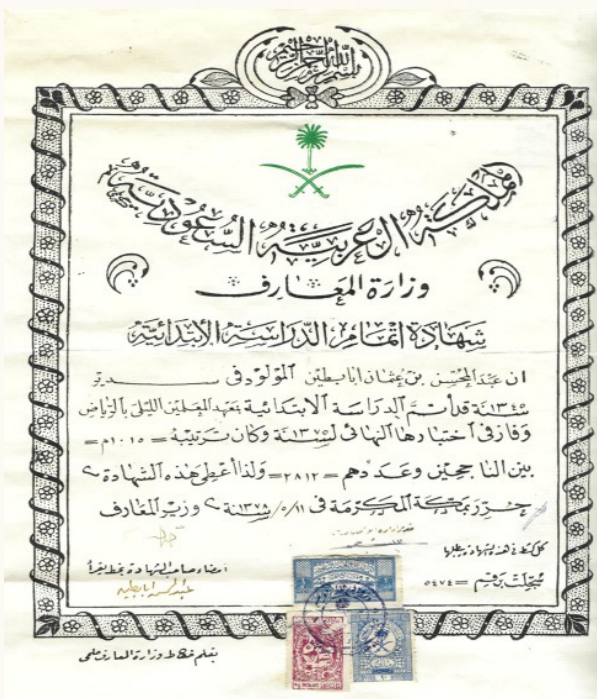 بسم الله الرحمن الرحيم
المملكة العربية السعودية
وزارة المعارف
شهادة اتمام الدراسة الابتدائية
ان عبد المحسن بن عثمان ابابطين المولود في سدير
سنة ١٣٤٥ قد أتم الدراسة الابتدائية بمعهد المعلمين الليلي بالرياض
وفاز في اختبارها النهائي لسنة ١٣٧٢ وكان ترتيبه = ١٠١٥م =
بين الناجحين وعددهم = ٢٨١٢ = ولذا أعطي هذه الشهادة
حرر بمكة المكرمة في ١١/٥/١٣٧٨ سنة وزير المعارف
كل كشط في هذه الشهادة يبطلها
سجلت برقم = ٥٤٧٤
امضاء صاحب الشهادة بخط يقرأ
عبد المحسن ابابطين
بقلم خطاط وزارة المعارف حلمي